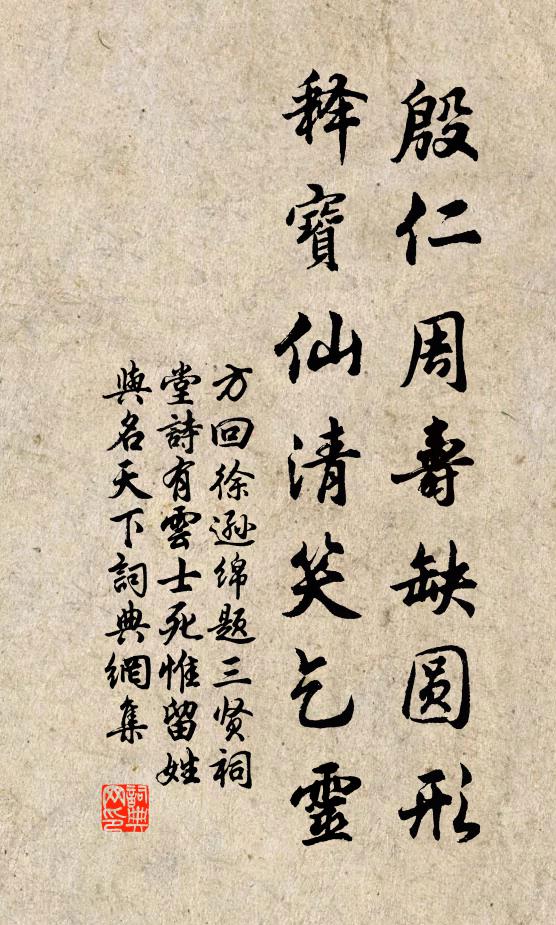 殷仁周壽缺圆形
释寶仙清笑乞靈
方回徐逊绵题三贤祠
堂詩有雲士死惟留姓
與名天下詞典網集
詞典
网印